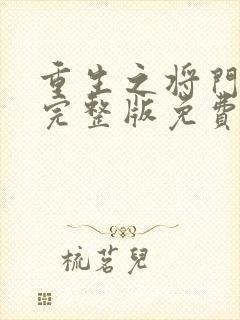 重生之将門
完整版免費
梳茗兒